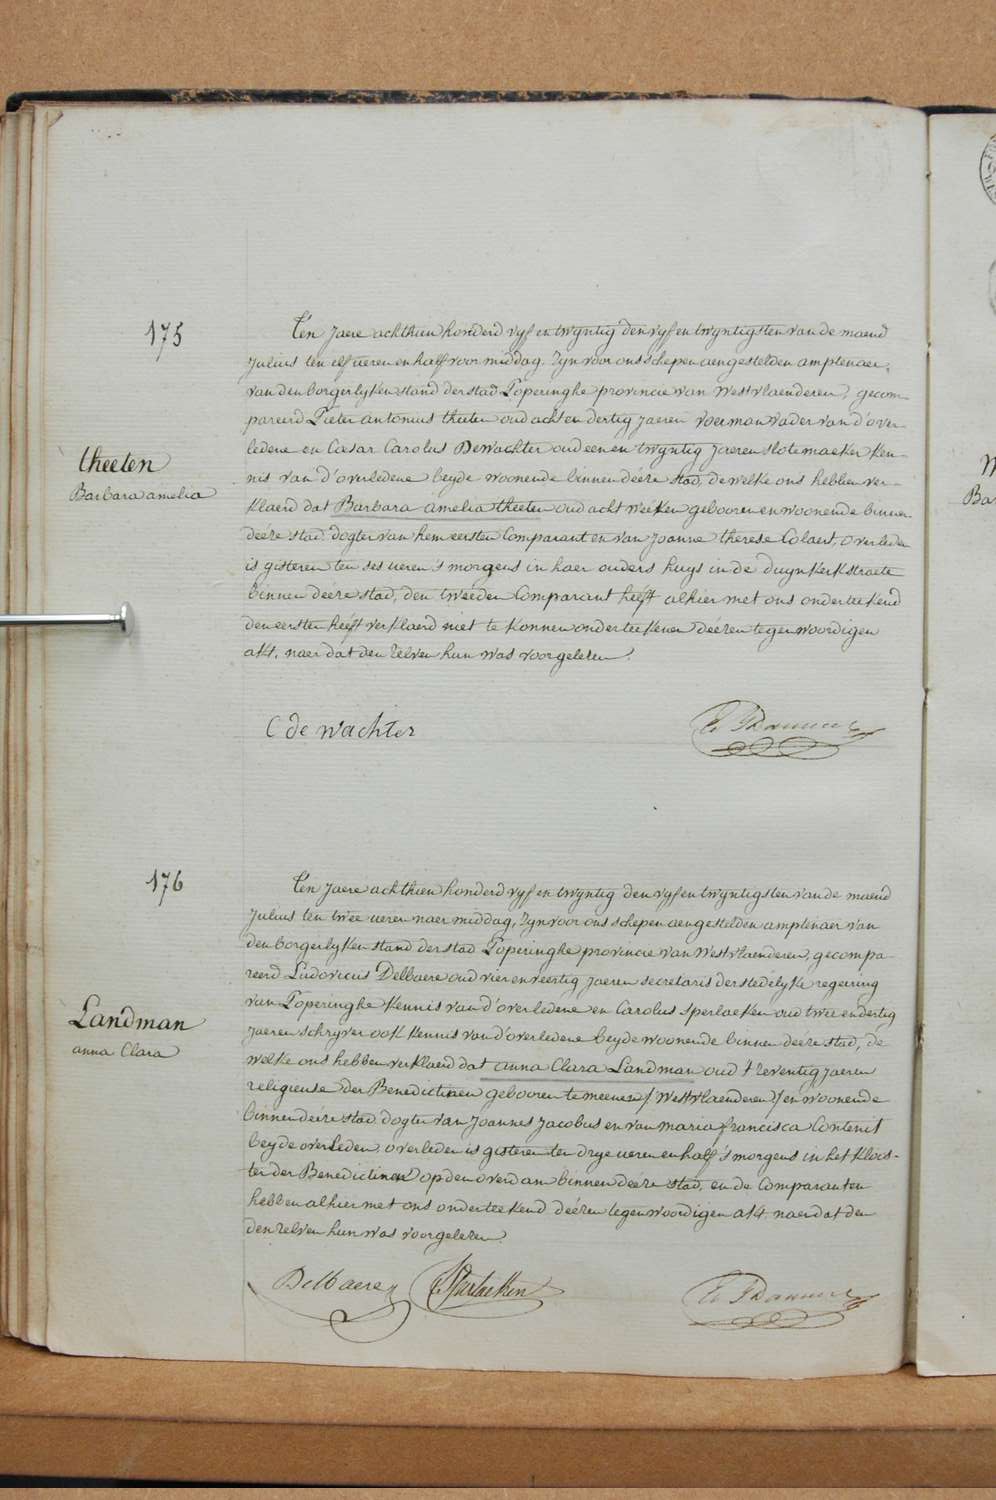 175
theeten
Barbara amelia
Ten Jaere achthien honderd vyf en twyntig den vyf en twyntigsten van de maend
Julius ten elf ueren en half voor middag. Zyn voor ons schepen aengestelden amptenaer
van den borgerlyken stand der stad Poperinghe provincie van Westvlaenderen, gecom-
pareerd Pieter antonius theeten oud acht en dertig jaeren voerman vader van d'over-
ledene en Cæsar Carolus Dewachter oud een en twyntig Jaeren slotemaeker ken-
nis van d'overledene beyde woonende binnen deéze stad, de welke ons hebben ver-
klaerd dat Barbara amelia theeten oud acht weéken gebooren en woonende binnen
deéze stad dogter van hem eersten Comparant en van Joanne therese Colaert, overleden
is gisteren ten ses ueren 's morgens in haer ouders huys in de duynkerkstraete
binnen deéze stad, den tweéden Comparant heéft alhier met ons onderteekend
den eersten heéft verklaerd niet te konnen onderteekenen deézen tegenwoordigen
akt, naer dat den zelven hun was voorgelezen.
C de wachter
176
Landman
anna Clara
Ten Jaere achthien honderd vyf en twyntig den vyf en twyntigsten van de maend
Julius ten twee ueren naer middag, Zyn voor ons schepen aengestelden amptenaer van
den borgerlyken stand der stad Poperinghe provincie van Westvlaenderen, gecompa-
reerd Ludovicus Delbaere oud vier en veertig Jaeren secretaris der stedelyke regeiring
van Poperinghe kennis van d'overledene en Carolus Sperlaeken oud twee en dertig
Jaeren schryver ook kennis van d'overledene beyde woonende binnen deéze stad, de
welke ons hebben verklaerd dat anna Clara Landman oud t'zeventig jaeren
religieuse der Benedictinen gebooren te meenen / Westvlaenderen / en woonende
binnen deéze stad dogter van Joannes Jacobus en van maria francisca Contenit
beyde overleden, overleden is gisteren ten drye ueren en half 's morgens in het kloos-
ter der Benedictinen op den overdam binnen deéze stad, en de Comparanten
hebben alhier met ons onderteekend deézen tegenwoordigen akt naer dat den
den zelven hun was voorgelezen.
Delbaere
C Sperlaeken